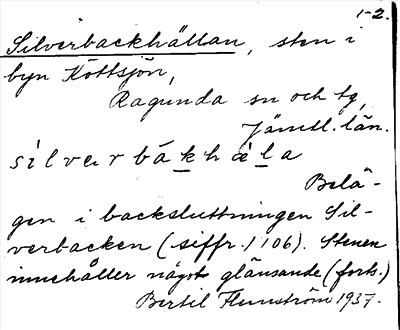 1-2.
Silverbackhällan, sten i
byn Köttsjön,
Ragunda sn och tg,
Jämtl. län.
silverbákhäla
Belä-
gen i backsluttningen Sil-
verbacken (siffr. 1106). Stenen
innehåller något glänsande (forts.)
Bertil Flemström 1937.